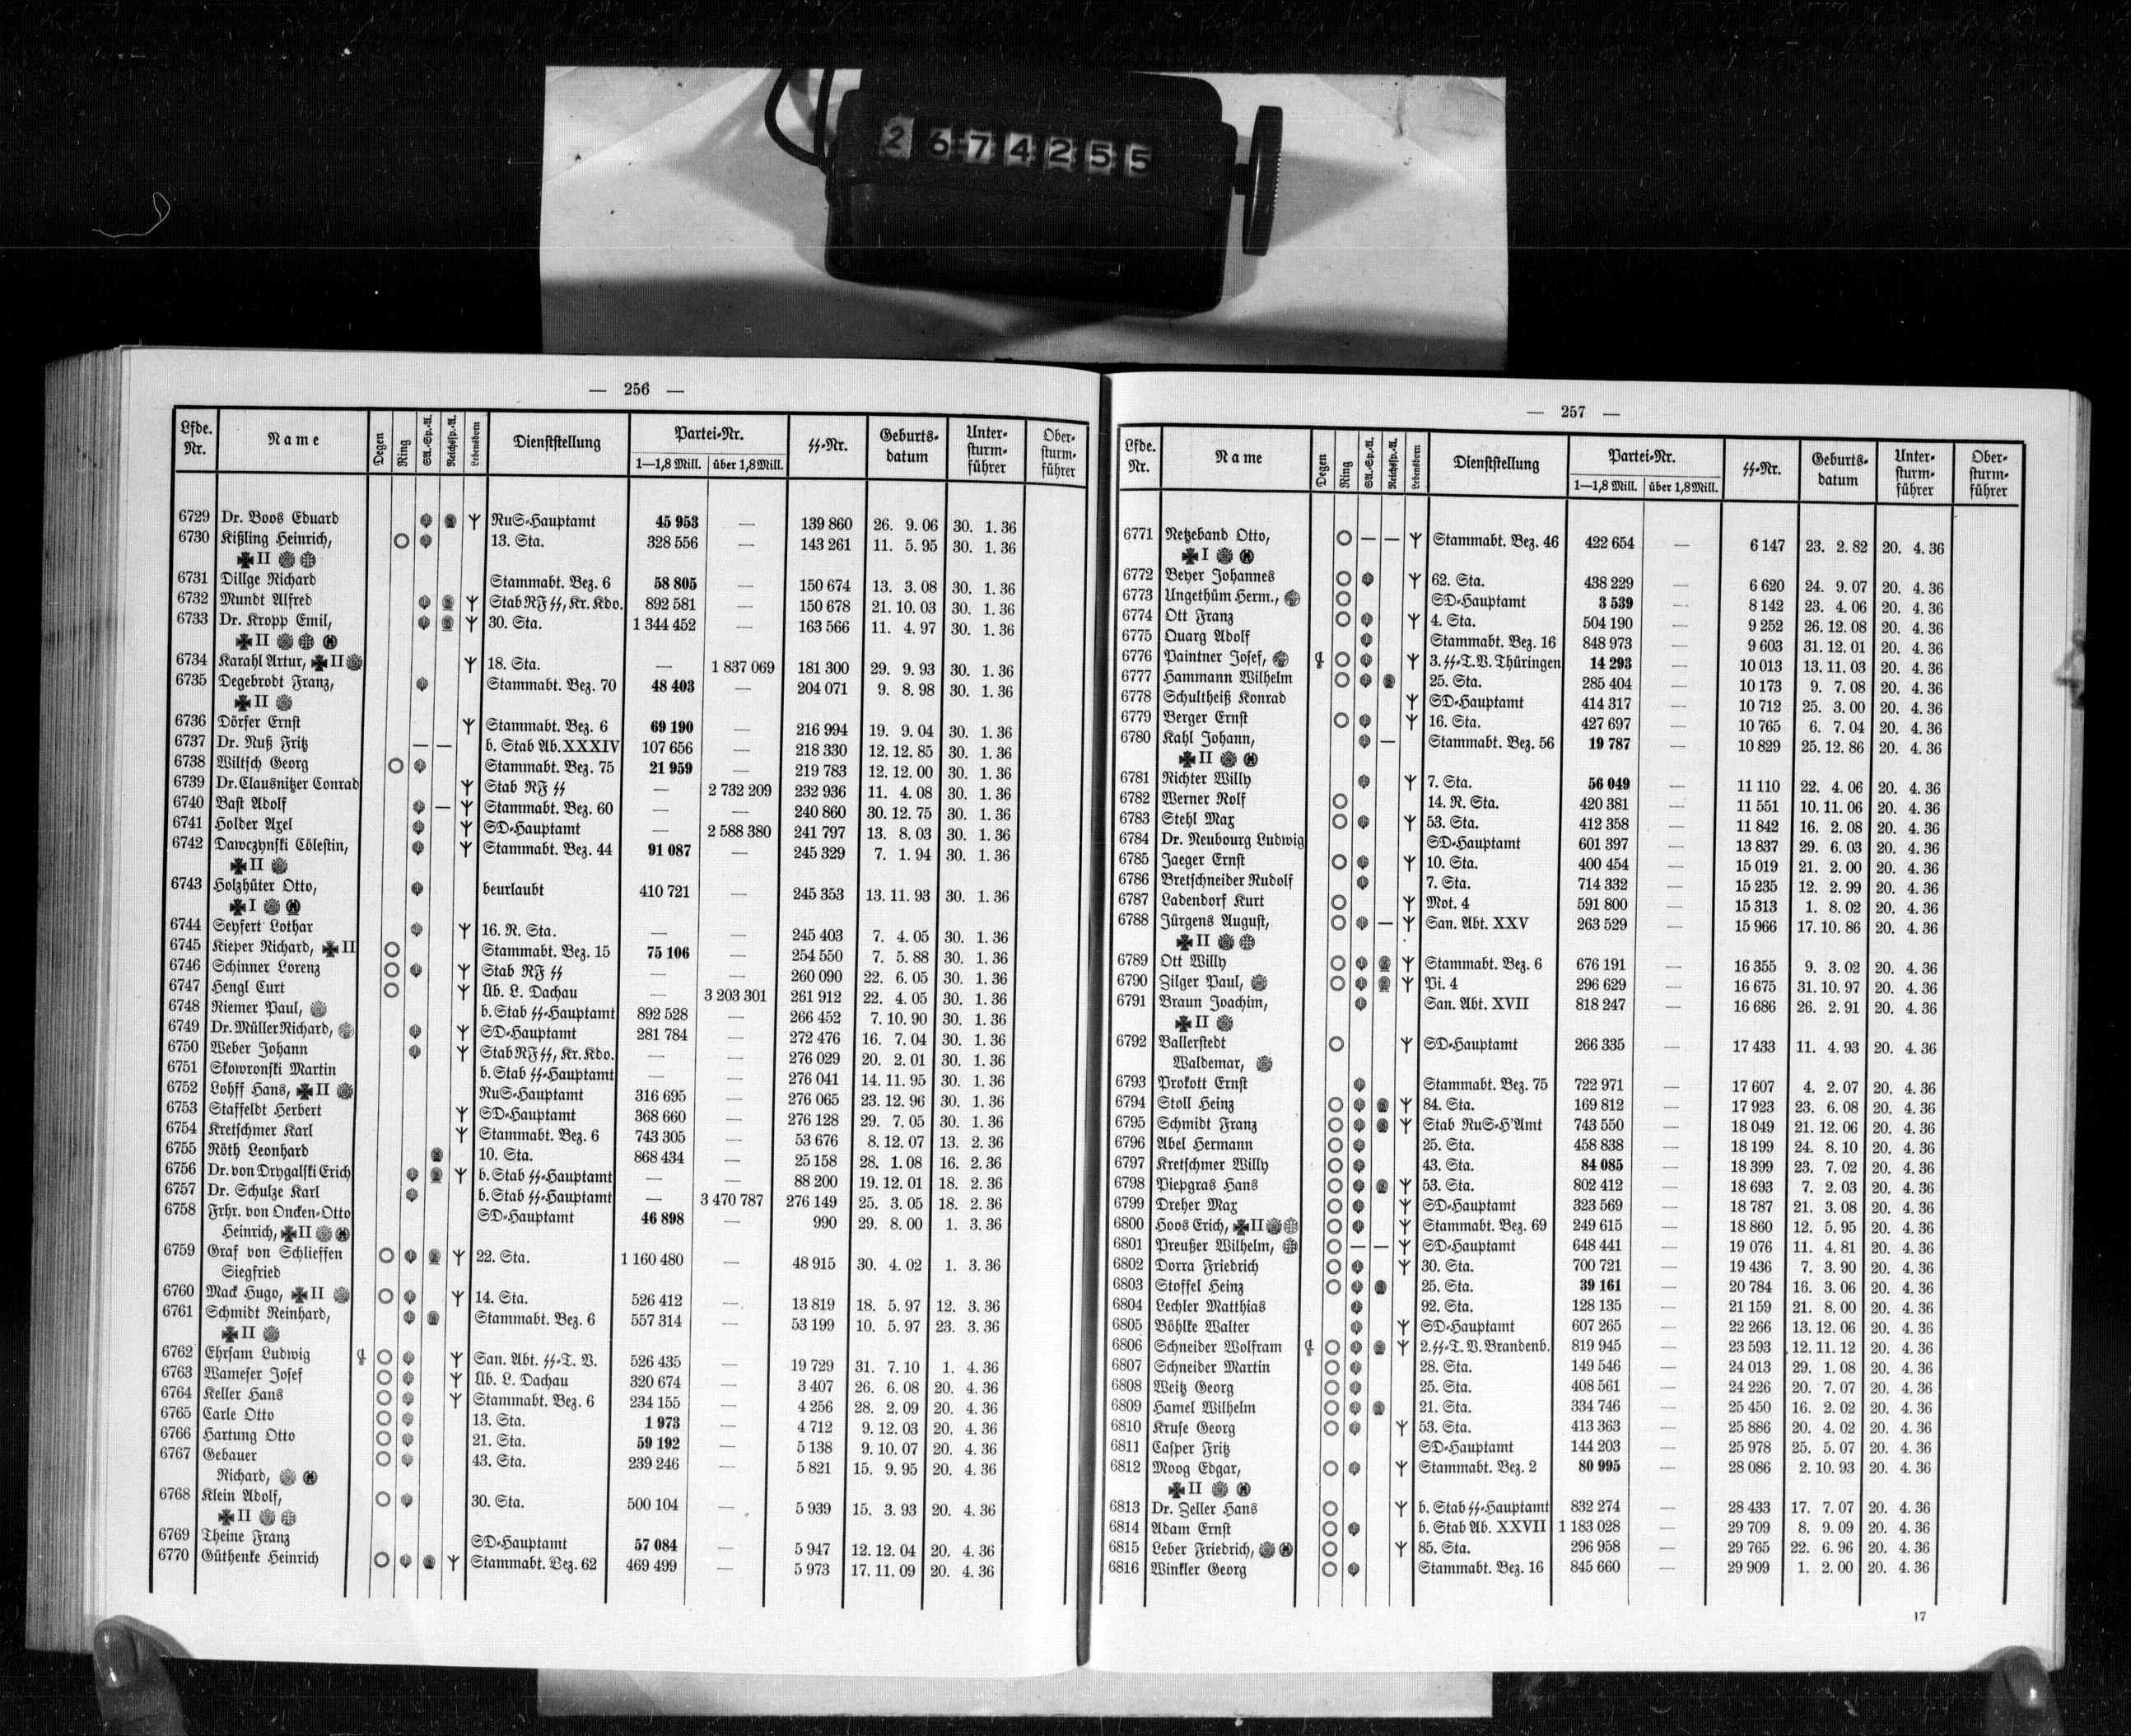 2 6 7 4 2 5 5
— 256 —
Lfde. Nr. Name Degen Ring SA.-Sp.-A. Reichssp.-A. Lebensborn Dienststellung Partei-Nr. 1—1,8 Mill. über 1,8 Mill. SS-Nr. Geburts-datum Unter-sturm-führer Ober-sturm-führer
6729 Dr. Boos Eduard RuS-Hauptamt 45 953 — 139 860 26. 9. 06 30. 1. 36
6730 Kißling Heinrich, 13. Sta. 328 556 — 143 261 11. 5. 95 30. 1. 36
II
6731 Dillge Richard Stammabt. Bez. 6 58 805 — 150 674 13. 3. 08 30. 1. 36
6732 Mundt Alfred Stab RF SS, Kr. Kdo. 892 581 — 150 678 21. 10. 03 30. 1. 36
6733 Dr. Kropp Emil, 30. Sta. 1 344 452 — 163 566 11. 4. 97 30. 1. 36
II
6734 Karahl Artur, II 18. Sta. — 1 837 069 181 300 29. 9. 93 30. 1. 36
6735 Degebrodt Franz, Stammabt. Bez. 70 48 403 — 204 071 9. 8. 98 30. 1. 36
II
6736 Dörfer Ernst Stammabt. Bez. 6 69 190 — 216 994 19. 9. 04 30. 1. 36
6737 Dr. Nuß Fritz — — b. Stab Ab. XXXIV 107 656 — 218 330 12. 12. 85 30. 1. 36
6738 Wiltsch Georg Stammabt. Bez. 75 21 959 — 219 783 12. 12. 00 30. 1. 36
6739 Dr. Clausnitzer Conrad Stab RF SS — 2 732 209 232 936 11. 4. 08 30. 1. 36
6740 Bast Adolf — Stammabt. Bez. 60 — — 240 860 30. 12. 75 30. 1. 36
6741 Holder Axel SD-Hauptamt — 2 588 380 241 797 13. 8. 03 30. 1. 36
6742 Dawczynski Cölestin, Stammabt. Bez. 44 91 087 — 245 329 7. 1. 94 30. 1. 36
II
6743 Holzhüter Otto, beurlaubt 410 721 — 245 353 13. 11. 93 30. 1. 36
I
6744 Seyfert Lothar 16. R. Sta. — — 245 403 7. 4. 05 30. 1. 36
6745 Kieper Richard, II Stammabt. Bez. 15 75 106 — 254 550 7. 5. 88 30. 1. 36
6746 Schinner Lorenz Stab RF SS — — 260 090 22. 6. 05 30. 1. 36
6747 Hengl Curt Üb. L. Dachau — 3 203 301 261 912 22. 4. 05 30. 1. 36
6748 Riemer Paul, b. Stab SS-Hauptamt 892 528 — 266 452 7. 10. 90 30. 1. 36
6749 Dr. Müller Richard, SD-Hauptamt 281 784 — 272 476 16. 7. 04 30. 1. 36
6750 Weber Johann Stab RF SS, Kr. Kdo. — — 276 029 20. 2. 01 30. 1. 36
6751 Skowronski Martin b. Stab SS-Hauptamt — — 276 041 14. 11. 95 30. 1. 36
6752 Lohff Hans, II RuS-Hauptamt 316 695 — 276 065 23. 12. 96 30. 1. 36
6753 Staffeldt Herbert SD-Hauptamt 368 660 — 276 128 29. 7. 05 30. 1. 36
6754 Kretschmer Karl Stammabt. Bez. 6 743 305 — 53 676 8. 12. 07 13. 2. 36
6755 Röth Leonhard 10. Sta. 868 434 — 25 158 28. 1. 08 16. 2. 36
6756 Dr. von Drygalski Erich b. Stab SS-Hauptamt — — 88 200 19. 12. 01 18. 2. 36
6757 Dr. Schulze Karl b. Stab SS-Hauptamt — 3 470 787 276 149 25. 3. 05 18. 2. 36
6758 Frhr. von Oncken-Otto SD-Hauptamt 46 898 — 990 29. 8. 00 1. 3. 36
Heinrich, II
6759 Graf von Schlieffen 22. Sta. 1 160 480 — 48 915 30. 4. 02 1. 3. 36
Siegfried
6760 Mack Hugo, II 14. Sta. 526 412 — 13 819 18. 5. 97 12. 3. 36
6761 Schmidt Reinhard, Stammabt. Bez. 6 557 314 — 53 199 10. 5. 97 23. 3. 36
II
6762 Ehrsam Ludwig San. Abt. SS-T. V. 526 435 — 19 729 31. 7. 10 1. 4. 36
6763 Wameser Josef Üb. L. Dachau 320 674 — 3 407 26. 6. 08 20. 4. 36
6764 Keller Hans Stammabt. Bez. 6 234 155 — 4 256 28. 2. 09 20. 4. 36
6765 Carle Otto 13. Sta. 1 973 — 4 712 9. 12. 03 20. 4. 36
6766 Hartung Otto 21. Sta. 59 192 — 5 138 9. 10. 07 20. 4. 36
6767 Gebauer 43. Sta. 239 246 — 5 821 15. 9. 95 20. 4. 36
Richard,
6768 Klein Adolf, 30. Sta. 500 104 — 5 939 15. 3. 93 20. 4. 36
II
6769 Theine Franz SD-Hauptamt 57 084 — 5 947 12. 12. 04 20. 4. 36
6770 Güthenke Heinrich Stammabt. Bez. 62 469 499 — 5 973 17. 11. 09 20. 4. 36
— 257 —
Lfde. Nr. Name Degen Ring SA.-Sp.-A. Reichssp.-A. Lebensborn Dienststellung Partei-Nr. 1—1,8 Mill. über 1,8 Mill. SS-Nr. Geburts-datum Unter-sturm-führer Ober-sturm-führer
6771 Netzeband Otto, — — Stammabt. Bez. 46 422 654 — 6 147 23. 2. 82 20. 4. 36
I
6772 Beyer Johannes 62. Sta. 438 229 — 6 620 24. 9. 07 20. 4. 36
6773 Ungethüm Herm., SD-Hauptamt 3 539 — 8 142 23. 4. 06 20. 4. 36
6774 Ott Franz 4. Sta. 504 190 — 9 252 26. 12. 08 20. 4. 36
6775 Quarg Adolf Stammabt. Bez. 16 848 973 — 9 603 31. 12. 01 20. 4. 36
6776 Paintner Josef, 3. SS-T. V. Thüringen 14 293 — 10 013 13. 11. 03 20. 4. 36
6777 Hammann Wilhelm 25. Sta. 285 404 — 10 173 9. 7. 08 20. 4. 36
6778 Schultheiß Konrad SD-Hauptamt 414 317 — 10 712 25. 3. 00 20. 4. 36
6779 Berger Ernst 16. Sta. 427 697 — 10 765 6. 7. 04 20. 4. 36
6780 Kahl Johann, — Stammabt. Bez. 56 19 787 — 10 829 25. 12. 86 20. 4. 36
II
6781 Richter Willy 7. Sta. 56 049 — 11 110 22. 4. 06 20. 4. 36
6782 Werner Rolf 14. R. Sta. 420 381 — 11 551 10. 11. 06 20. 4. 36
6783 Stehl Max 53. Sta. 412 358 — 11 842 16. 2. 08 20. 4. 36
6784 Dr. Neubourg Ludwig SD-Hauptamt 601 397 — 13 837 29. 6. 03 20. 4. 36
6785 Jaeger Ernst 10. Sta. 400 454 — 15 019 21. 2. 00 20. 4. 36
6786 Bretschneider Rudolf 7. Sta. 714 332 — 15 235 12. 2. 99 20. 4. 36
6787 Ladendorf Kurt Mot. 4 591 800 — 15 313 1. 8. 02 20. 4. 36
6788 Jürgens August, — San. Abt. XXV 263 529 — 15 966 17. 10. 86 20. 4. 36
II
6789 Ott Willy Stammabt. Bez. 6 676 191 — 16 355 9. 3. 02 20. 4. 36
6790 Zilger Paul, Pi. 4 296 629 — 16 675 31. 10. 97 20. 4. 36
6791 Braun Joachim, San. Abt. XVII 818 247 — 16 686 26. 2. 91 20. 4. 36
II
6792 Ballerstedt SD-Hauptamt 266 335 — 17 433 11. 4. 93 20. 4. 36
Waldemar,
6793 Prokott Ernst Stammabt. Bez. 75 722 971 — 17 607 4. 2. 07 20. 4. 36
6794 Stoll Heinz 84. Sta. 169 812 — 17 923 23. 6. 08 20. 4. 36
6795 Schmidt Franz Stab RuS-H'Amt 743 550 — 18 049 21. 12. 06 20. 4. 36
6796 Abel Hermann 25. Sta. 458 838 — 18 199 24. 8. 10 20. 4. 36
6797 Kretschmer Willy 43. Sta. 84 085 — 18 399 23. 7. 02 20. 4. 36
6798 Piepgras Hans 53. Sta. 802 412 — 18 693 7. 2. 03 20. 4. 36
6799 Dreher Max SD-Hauptamt 323 569 — 18 787 21. 3. 08 20. 4. 36
6800 Hoos Erich, II Stammabt. Bez. 69 249 615 — 18 860 12. 5. 95 20. 4. 36
6801 Preußer Wilhelm, — — SD-Hauptamt 648 441 — 19 076 11. 4. 81 20. 4. 36
6802 Dorra Friedrich 30. Sta. 700 721 — 19 436 7. 3. 90 20. 4. 36
6803 Stoffel Heinz 25. Sta. 39 161 — 20 784 16. 3. 06 20. 4. 36
6804 Lechler Matthias 92. Sta. 128 135 — 21 159 21. 8. 00 20. 4. 36
6805 Böhlke Walter SD-Hauptamt 607 265 — 22 266 13. 12. 06 20. 4. 36
6806 Schneider Wolfram 2. SS-T. V. Brandenb. 819 945 — 23 593 12. 11. 12 20. 4. 36
6807 Schneider Martin 28. Sta. 149 546 — 24 013 29. 1. 08 20. 4. 36
6808 Weitz Georg 25. Sta. 408 561 — 24 226 20. 7. 07 20. 4. 36
6809 Hamel Wilhelm 21. Sta. 334 746 — 25 450 16. 2. 02 20. 4. 36
6810 Kruse Georg 53. Sta. 413 363 — 25 886 20. 4. 02 20. 4. 36
6811 Casper Fritz SD-Hauptamt 144 203 — 25 978 25. 5. 07 20. 4. 36
6812 Moog Edgar, Stammabt. Bez. 2 80 995 — 28 086 2. 10. 93 20. 4. 36
II
6813 Dr. Zeller Hans b. Stab SS-Hauptamt 832 274 — 28 433 17. 7. 07 20. 4. 36
6814 Adam Ernst b. Stab Ab. XXVII 1 183 028 — 29 709 8. 9. 09 20. 4. 36
6815 Leber Friedrich, 85. Sta. 296 958 — 29 765 22. 6. 96 20. 4. 36
6816 Winkler Georg Stammabt. Bez. 16 845 660 — 29 909 1. 2. 00 20. 4. 36
17